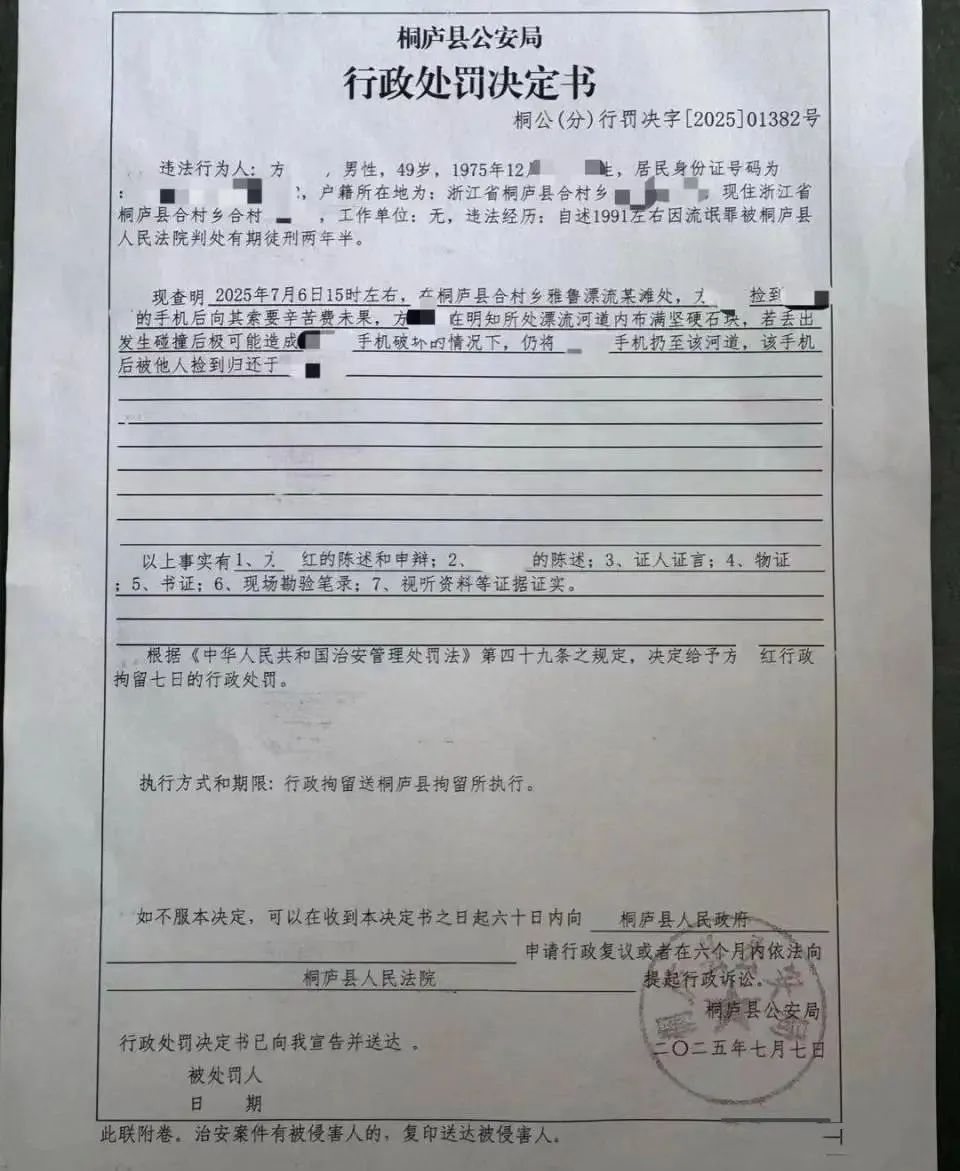 桐庐县公安局
行政处罚决定书
桐公(分)行罚决字[2025]01382号
违法行为人：方 ，男性，49岁，1975年12月 生，居民身份证号码为
： ，户籍所在地为：浙江省桐庐县合村乡 ，现住浙江省
桐庐县合村乡合村 ，工作单位：无，违法经历：自述1991左右因流氓罪被桐庐县
人民法院判处有期徒刑两年半。
现查明 2025年7月6日15时左右，在桐庐县合村乡雅鲁漂流某滩处， 捡到
的手机后向其索要辛苦费未果，方 在明知所处漂流河道内布满坚硬石块，若丢出
发生碰撞后极可能造成 手机破坏的情况下，仍将 手机扔至该河道，该手机
后被他人捡到归还于
以上事实有1、 红的陈述和申辩；2、 的陈述；3、证人证言；4、物证
；5、书证；6、现场勘验笔录；7、视听资料等证据证实。
根据《中华人民共和国治安管理处罚法》第四十九条之规定，决定给予方 红行政
拘留七日的行政处罚。
执行方式和期限：行政拘留送桐庐县拘留所执行。
如不服本决定，可以在收到本决定书之日起六十日内向 桐庐县人民政府
申请行政复议或者在六个月内依法向
桐庐县人民法院 提起行政诉讼。
桐庐县公安局
二〇二五年七月七日
行政处罚决定书已向我宣告并送达 。
被处罚人
日 期
此联附卷。治安案件有被侵害人的，复印送达被侵害人。